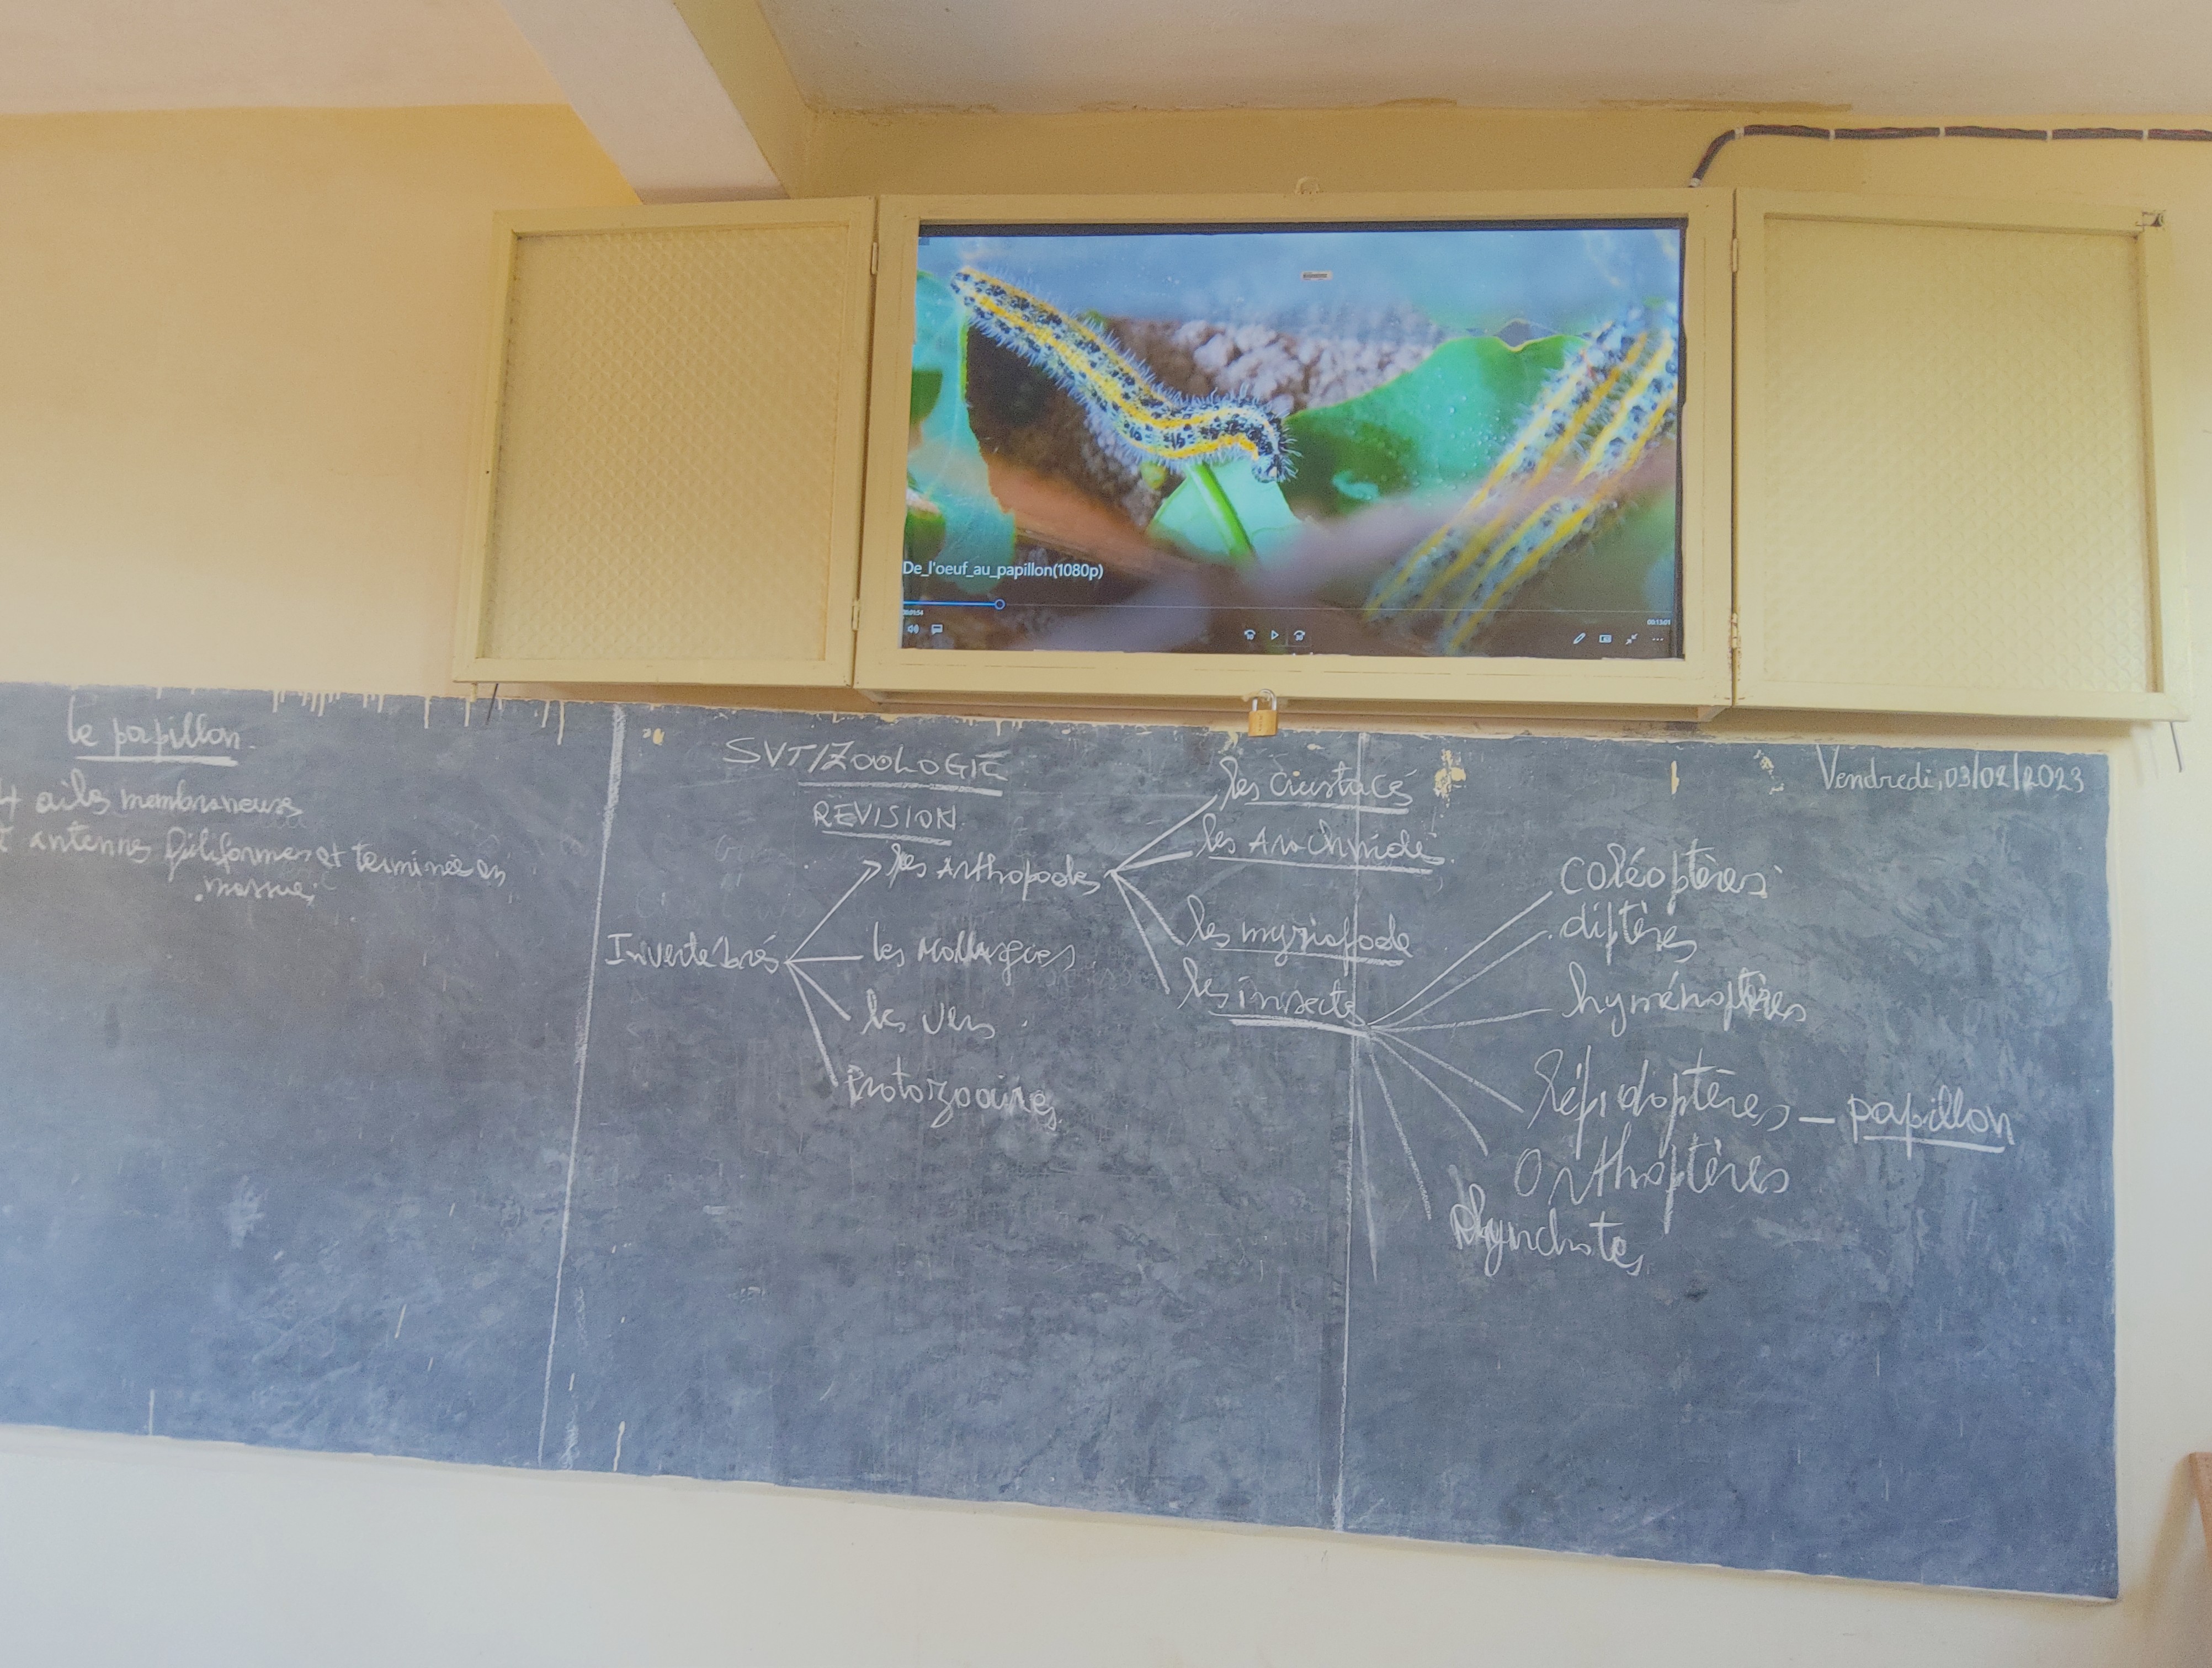 De_l'oeuf_au_papillon(1080p)
00:01:54
00:13:01
le papillon.
4 ailes membraneuses
antennes filiformes et terminées en
massue
SVT/ZOOLOGIE
REVISION
Invertébrés
les Arthopodes
les Mollusques
les Vers
Protozoaires
les Crustacés
les Arachnides
les myriapode
les insecte
Vendredi, 03/02/2023
Coléoptères
diptères
hyménoptères
lépidoptères – papillon
Orthoptères
Rhynchotes